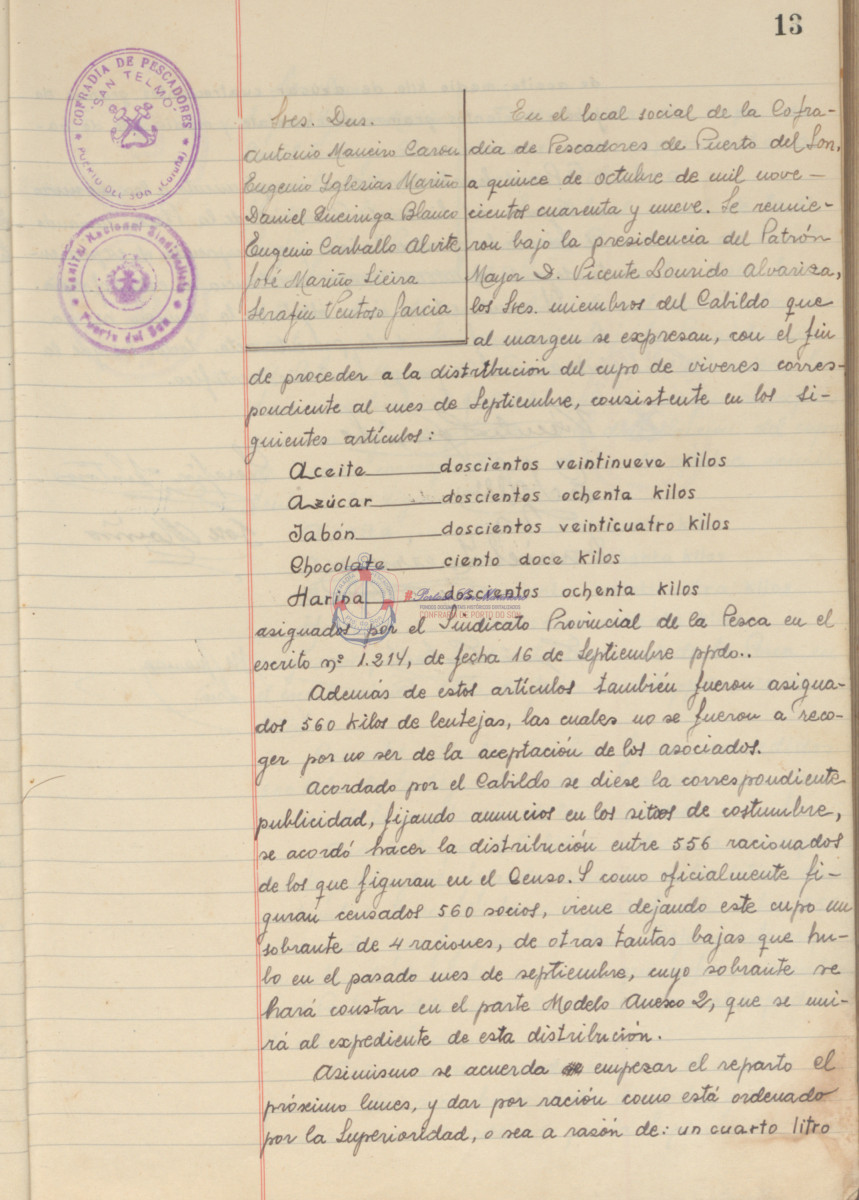 13
COFRADIA DE PESCADORES
"SAN TELMO"
PUERTO DEL SON (Coruña)
Central Nacional Sindicalista
Puerto del Son
Sres. Dns.
Antonio Maneiro Carou
Eugenio Yglesias Mariño
Daniel Queiruga Blanco
Eugenio Carballo Alvite
José Mariño Lieira
Serafín Ventoso García
En el local social de la Cofra-
dia de Pescadores de Puerto del Son,
a quince de octubre de mil nove-
cientos cuarenta y nueve. Se reunie-
ron bajo la presidencia del Patrón
Mayor D. Vicente Lourido Alvariza,
los Sres. miembros del Cabildo que
al margen se expresan, con el fin
de proceder a la distribución del cupo de viveres corres-
pondiente al mes de Septiembre, consistente en los si-
guientes artículos:
Aceite doscientos veintinueve kilos
Azúcar doscientos ochenta kilos
Jabón doscientos veinticuatro kilos
Chocolate ciento doce kilos
Harina doscientos ochenta kilos
CONFRARÍA DE PORTO DO SON
asignados por el Sindicato Provincial de la Pesca en el
escrito nº 1.214, de fecha 16 de Septiembre ppdo..
Además de estos artículos también fueron asigna-
dos 560 kilos de lentejas, las cuales no se fueron a reco-
ger por no ser de la aceptación de los asociados.
Acordado por el Cabildo se diese la correspondiente
publicidad, fijando anuncios en los sitios de costumbre,
se acordó hacer la distribución entre 556 racionados
de los que figuran en el Censo. Y como oficialmente fi-
guran censados 560 socios, viene dejando este cupo un
sobrante de 4 raciones, de otras tantas bajas que hu-
bo en el pasado mes de septiembre, cuyo sobrante se
hará constar en el parte Modelo Anexo 2, que se uni-
rá al expediente de esta distribución.
Asimismo se acuerda empezar el reparto el
próximo lunes, y dar por ración como está ordenado
por la Superioridad, o sea a rasón de: un cuarto litro